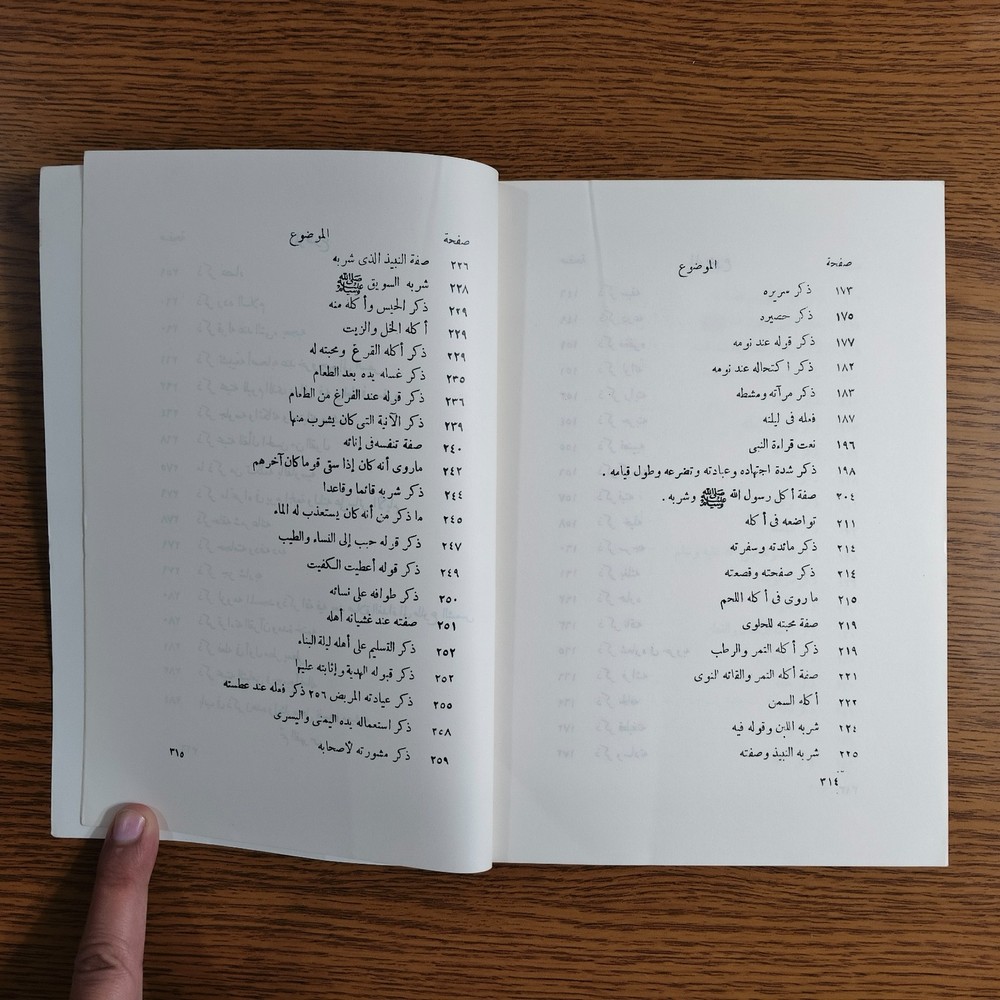 صفحة الموضوع
١٧٣ ذكر سريره
١٧٥ ذكر حصيره
١٧٧ ذكر قوله عند نومه
١٨٢ ذكر اكتحاله عند نومه
١٨٣ ذكر مرآته ومشطه
١٨٧ فعله فى ليلته
١٩٦ نعت قراءة النبى
١٩٨ ذكر شدة اجتهاده وعبادته وتضرعه وطول قيامه .
٢٠٤ صفة أكل رسول الله ﷺ وشربه .
٢١١ تواضعه فى أكله
٢١٤ ذكر مائدته وسفرته
٢١٤ ذكر صفحته وقصعته
٢١٥ ما روى فى أكله اللحم
٢١٩ صفة محبته للحلوى
٢١٩ ذكر أكله التمر والرطب
٢٢١ صفة أكله التمر والقائه النوى
٢٢٢ أكله السمن
٢٢٤ شربه اللبن وقوله فيه
٢٢٥ شربه النبيذ وصفته
٣١٤
صفحة الموضوع
٢٢٦ صفة النبيذ الذى شربه
٢٢٨ شربه السويق ﷺ
٢٢٩ ذكر الحيس وأكله منه
٢٢٩ أكله الخل والزيت
٢٢٩ ذكر أكله القرع ومحبته له
٢٣٥ ذكر غسله يده بعد الطعام
٢٣٦ ذكر قوله عند الفراغ من الطعام
٢٣٩ ذكر الآنية التى كان يشرب منها
٢٤٠ صفة تنفسه فى إنائه
٢٤٢ ماروى أنه كان إذا سقى قوما كان آخرهم
٢٤٤ ذكر شربه قائما وقاعدا
٢٤٥ ما ذكر من أنه كان يستعذب له الماء
٢٤٧ ذكر قوله حبب إلى النساء والطيب
٢٤٩ ذكر قوله أعطيت الكفيت
٢٥٠ ذكر طوافه على نسائه
٢٥١ صفته عند غشيانه أهله
٢٥٢ ذكر التسليم على أهله ليلة البناء
٢٥٢ ذكر قبوله الهدية وإثابته عليها
٢٥٥ ذكر عيادته المريض ٢٥٦ ذكر فعله عند عطسته
٢٥٨ ذكر استعماله يده اليمنى واليسرى
٢٥٩ ذكر مشورته لأصحابه
٣١٥